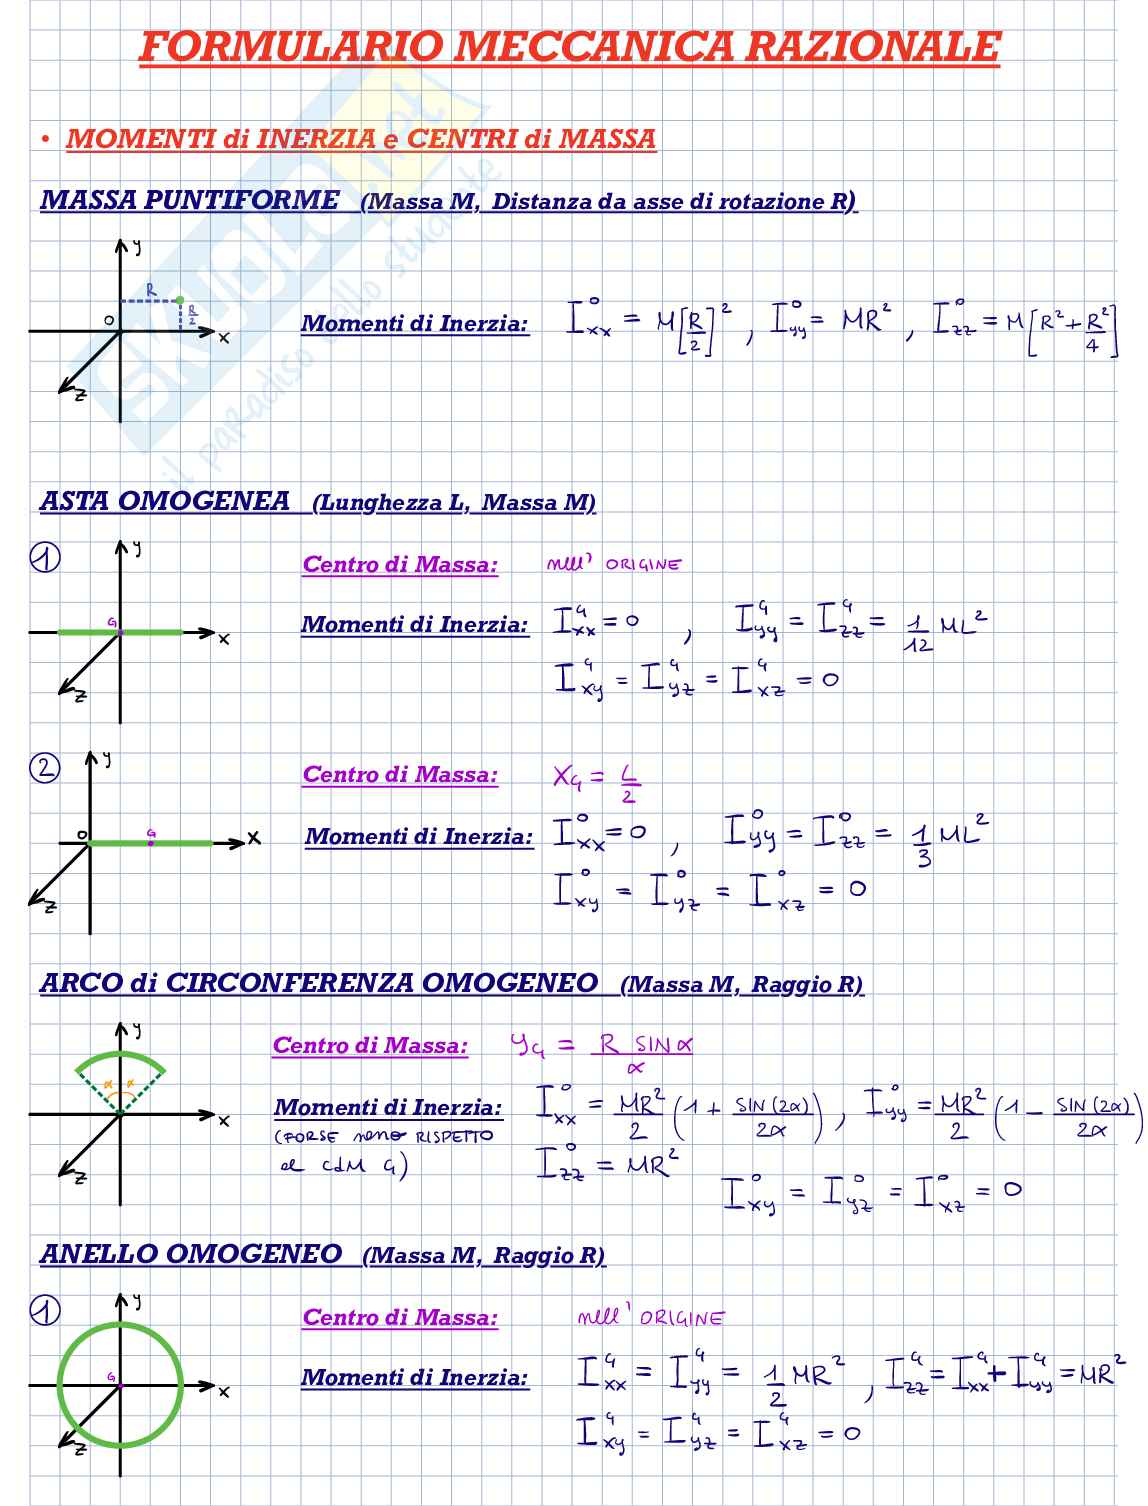 FORMULARIO MECCANICA RAZIONALE
• MOMENTI di INERZIA e CENTRI di MASSA
MASSA PUNTIFORME (Massa M, Distanza da asse di rotazione R)
y
R
R/2
O
x
z
Momenti di Inerzia: I^O_xx = M[R/2]², I^O_yy = MR², I^O_zz = M[R² + R²/4]
SKUOLA.net
il paradiso dello studente
ASTA OMOGENEA (Lunghezza L, Massa M)
1
y
G
x
z
Centro di Massa: nell' ORIGINE
Momenti di Inerzia: I^G_xx = 0, I^G_yy = I^G_zz = 1/12 ML²
I^G_xy = I^G_yz = I^G_xz = 0
2
y
O
G
x
z
Centro di Massa: X_G = L/2
Momenti di Inerzia: I^O_xx = 0, I^O_yy = I^O_zz = 1/3 ML²
I^O_xy = I^O_yz = I^O_xz = 0
ARCO di CIRCONFERENZA OMOGENEO (Massa M, Raggio R)
y
α α
x
z
Centro di Massa: y_G = R SIN α / α
Momenti di Inerzia: I^O_xx = MR²/2 (1 + SIN(2α)/2α), I^O_yy = MR²/2 (1 − SIN(2α)/2α)
(FORSE RISPETTO
CdM G)
I^O_zz = MR²
I^O_xy = I^O_yz = I^O_xz = 0
ANELLO OMOGENEO (Massa M, Raggio R)
1
y
G
x
z
Centro di Massa: nell' ORIGINE
Momenti di Inerzia: I^G_xx = I^G_yy = 1/2 MR², I^G_zz = I^G_xx + I^G_yy = MR²
I^G_xy = I^G_yz = I^G_xz = 0